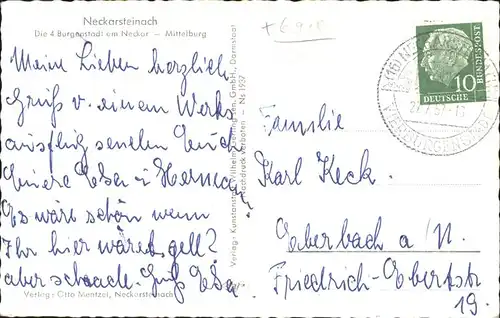 Neckarsteinach
Die 4 Burgenstadt am Neckar - Mittelburg
Meine Lieben herzlich
Gruß v. einem Werks
ausflug senden Euch
Eure Elsa u. Herman
Es wäre schön wenn
Ihr hier wäret, gell?
aber schaade. Gruß Elsa
Verlag: Otto Mentzel, Neckarsteinach
Verlag: Kunstanstalt Wilhelm GmbH., Darmstadt
Nachdruck verboten - Nr. 1937
10
DEUTSCHE
BUNDESPOST
Familie
Karl Keck.
Eberbach a/N.
Friedrich-Ebertstr
19.